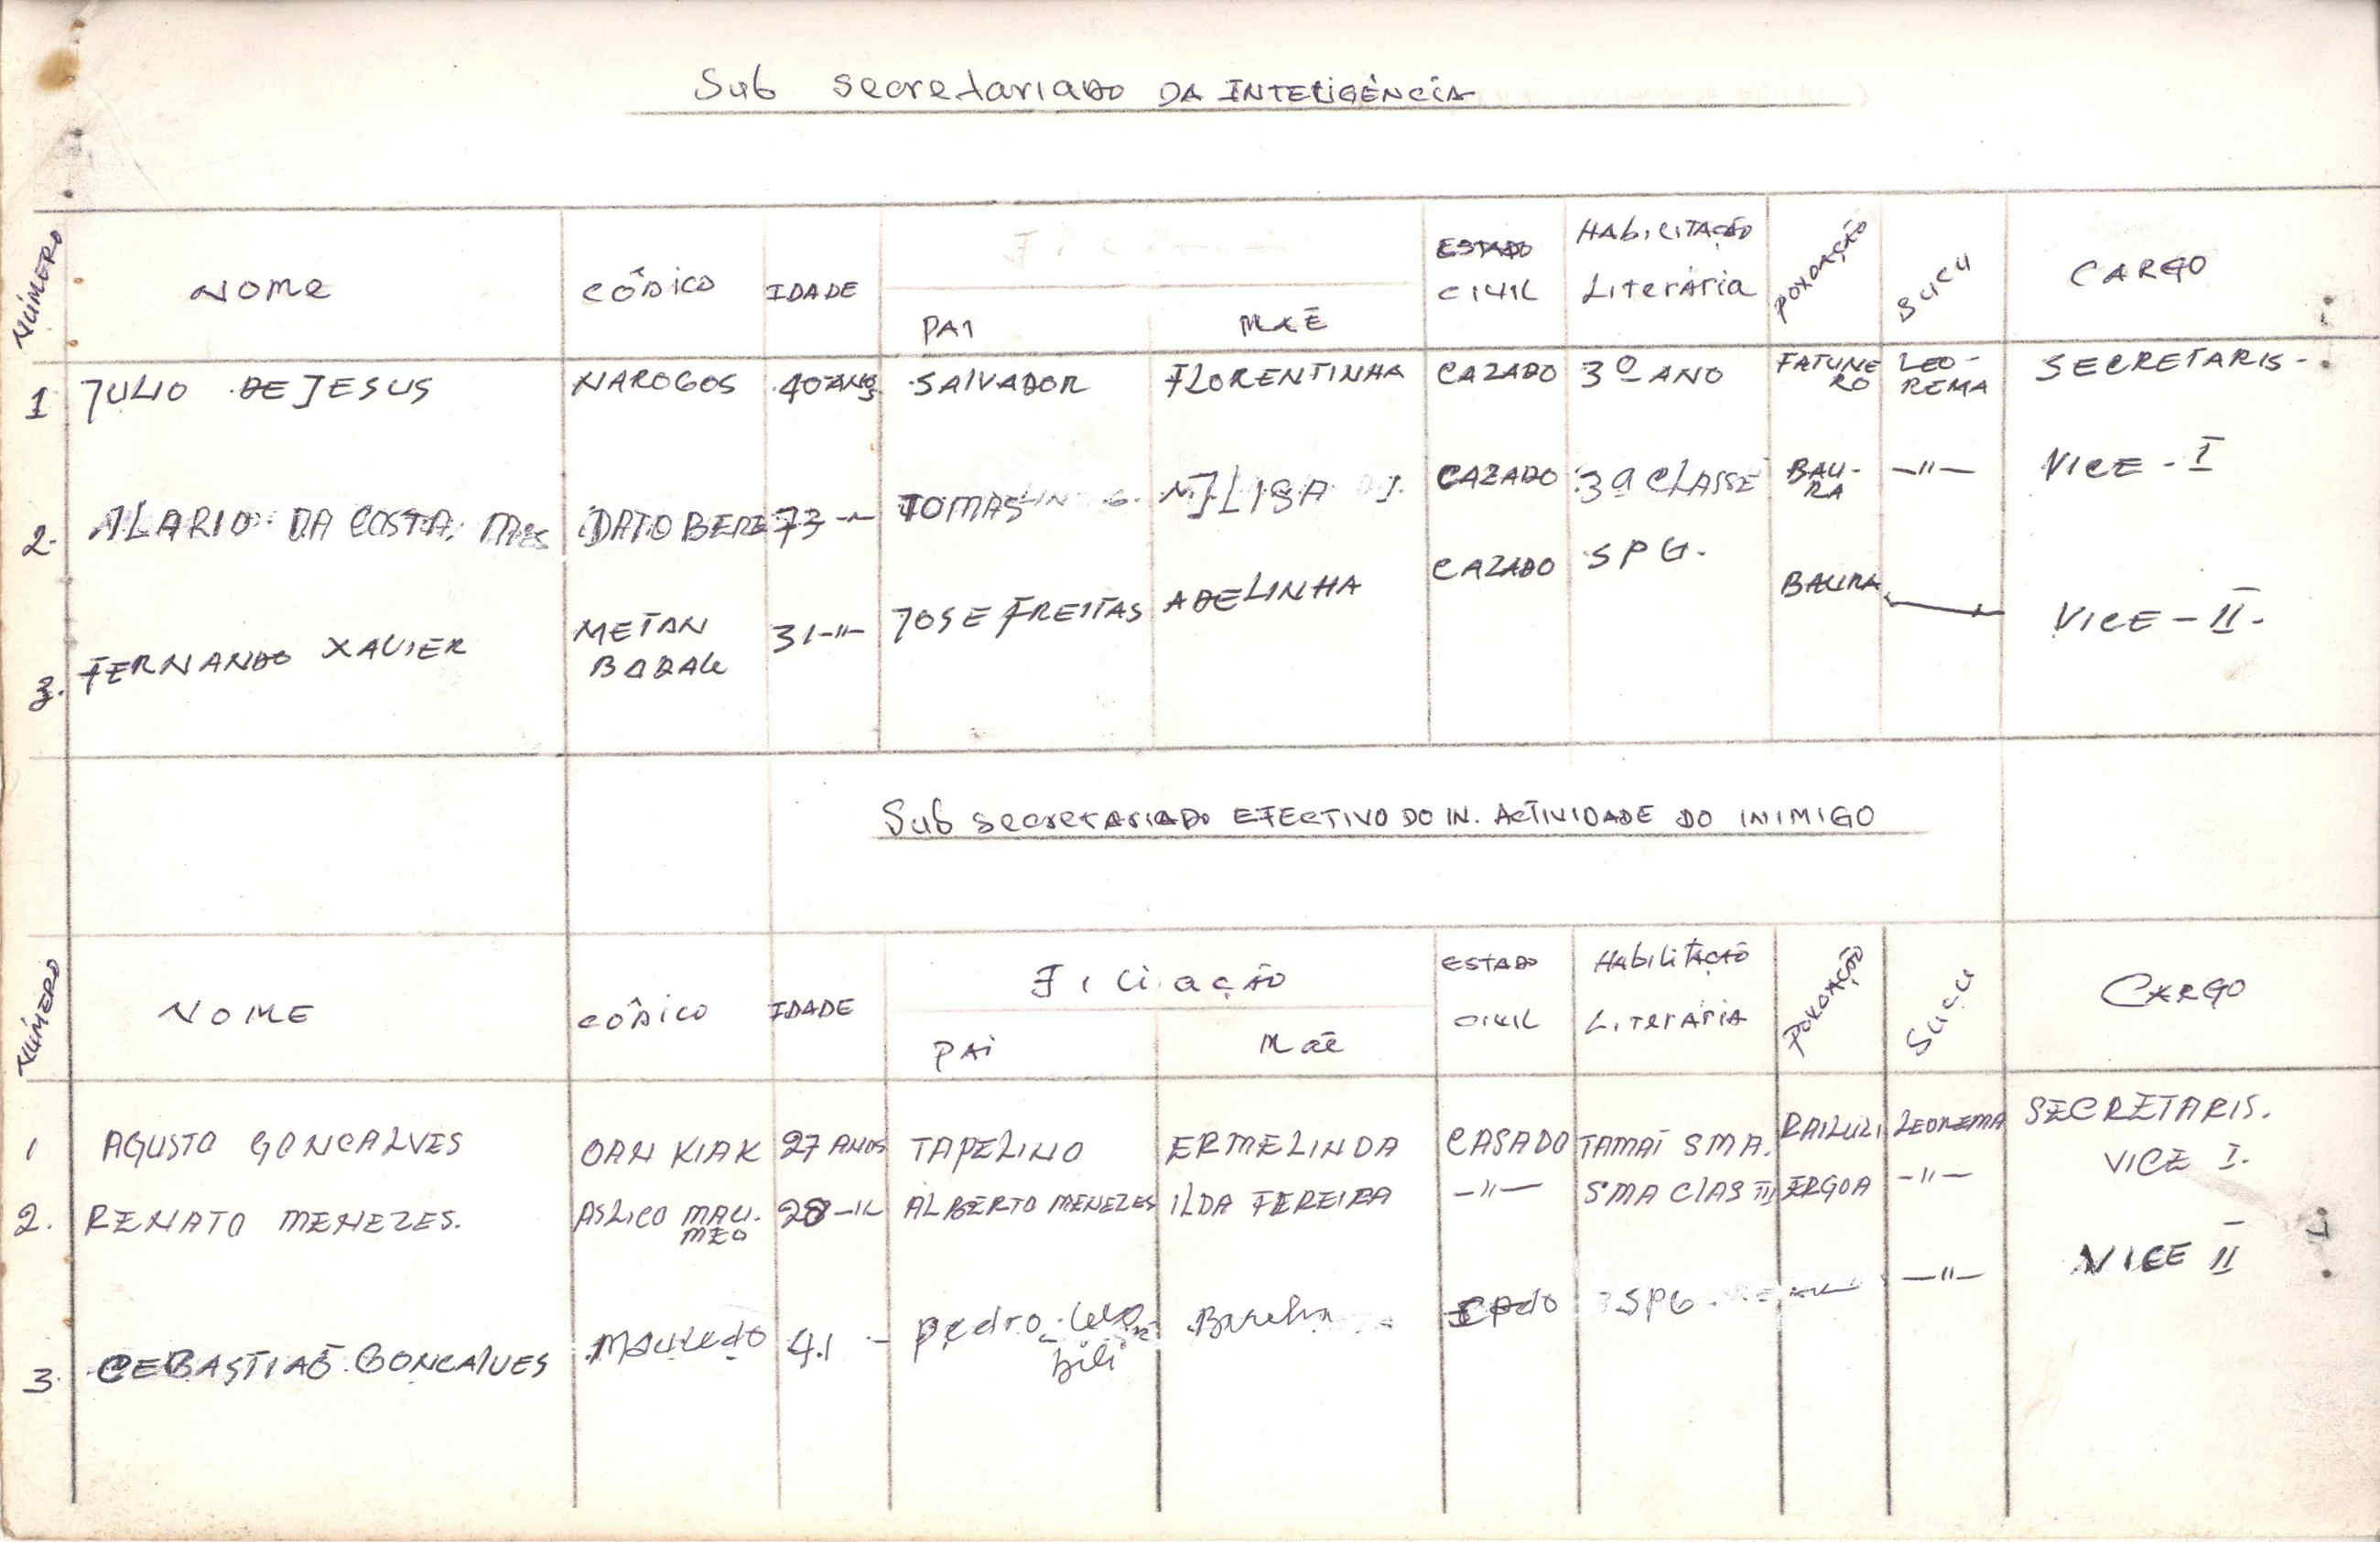 Sub secretariado DA INTELIGÊNCIA
NÚMERO NOME CÔDICO IDADE PAI MÃE ESTADO CIVIL HAbiLITAÇÃO LiterÁria POVOAÇÃO SUCU CARGO
1 JULIO DE JESUS NAROGOS 40 ANOS SALVADOR FLORENTINHA CAZADO 3º ANO FATUNERO LEO-REMA SECRETARIS-
2. DA COSTA DATO BERE 73 -"- TOMAS CAZADO 3ª CLASSE BAU-RA -"- VICE - I
3. FERNANDO XAVIER METAN 31-"- JOSE FREITAS ADELINHA CAZADO SPG. BAURA VICE - II.
Sub secretariado EFECTIVO DO IN. ACTIVIDADE DO INIMIGO
NÚMERO NOME CÔDICO IDADE Filiação PAi Mãe ESTADO CIVIL HabiLitação LiterÁria POVOAÇÃO Sucu CARGO
1 AGUSTO GONCALVES OAN KIAK 27 ANOS TAPELINO ERMELINDA CASADO TAMAT SMA. RAILULI LEOREMA SECRETARIS.
2. RENATO MENEZES. ASLICO MAU. MEO 28 -"- ALBERTO MENEZES ILDA FEREIRA -"- SMA CLAS III ERGOA -"- VICE I.
3. CEBASTIAÕ GONCALVES 41 - pedro bili SPG -"- VICE II